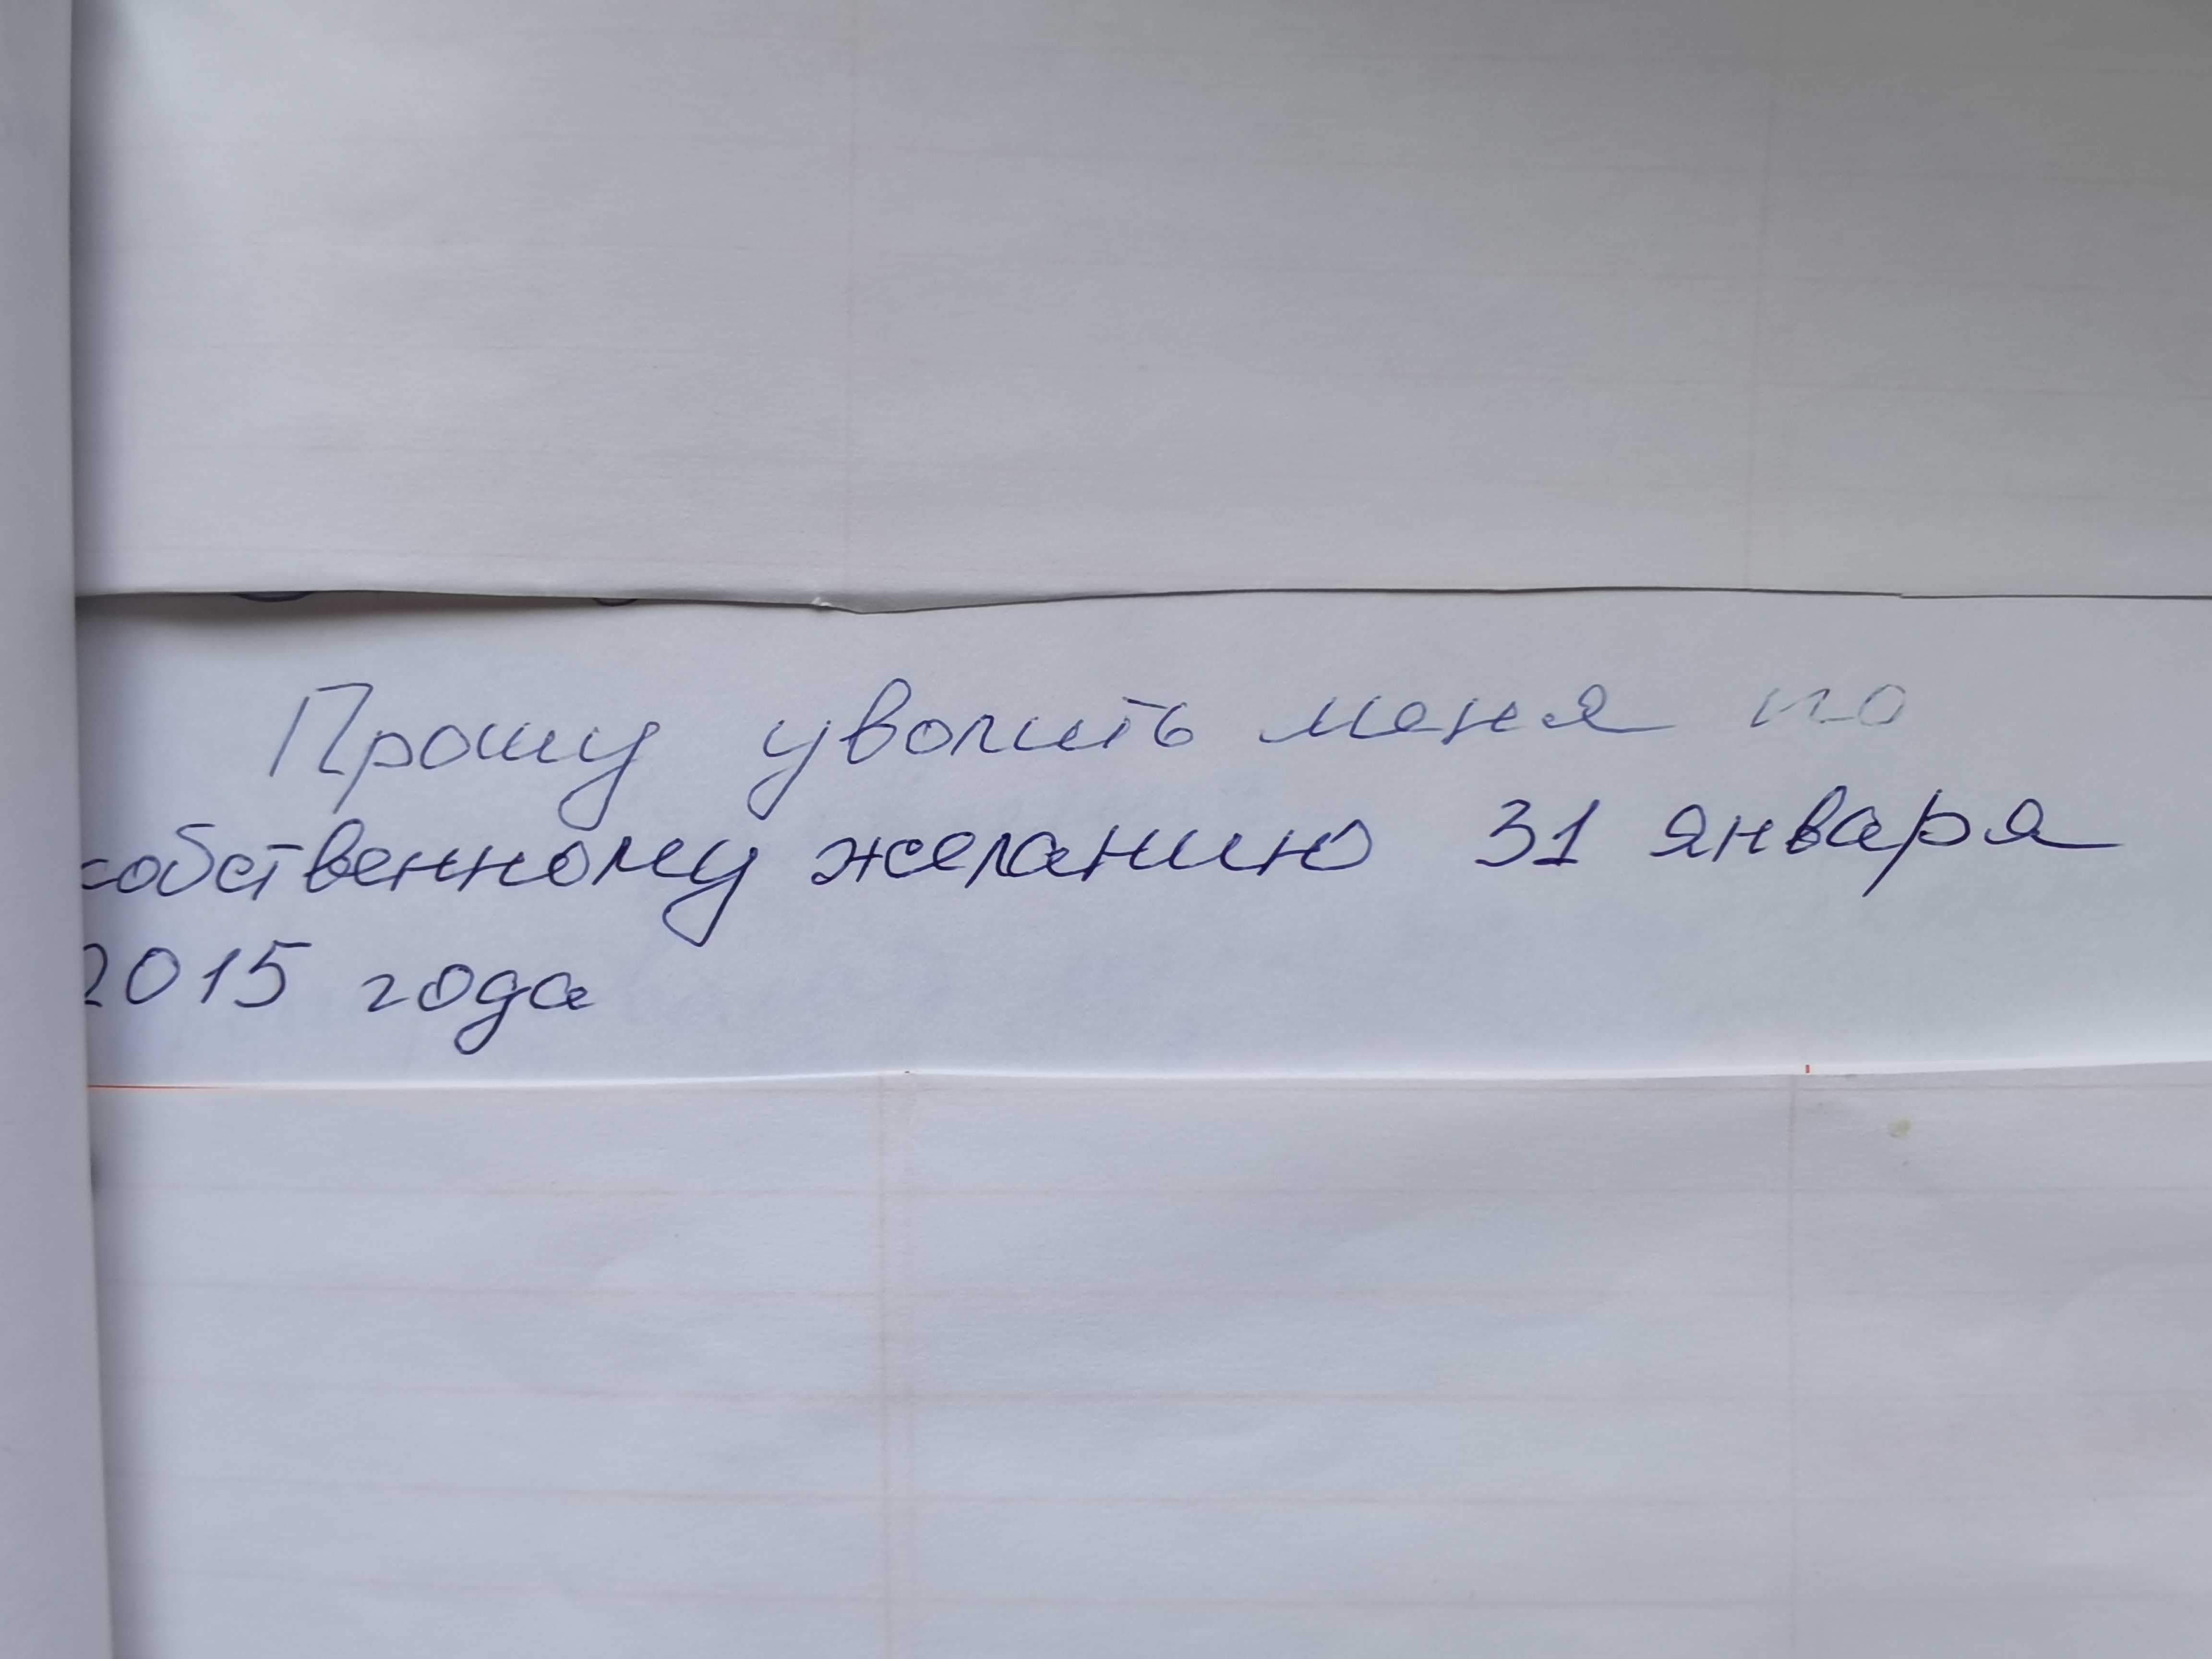 Прошу уволить меня по
собственному желанию 31 января
2015 года